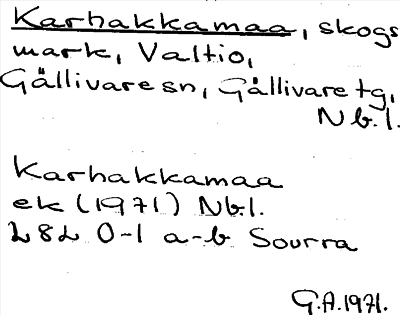 Karhakkamaa, skogs
mark, Valtio,
Gällivare sn, Gällivare tg,
Nb.l.
Karhakkamaa
ek (1971) Nb.l.
28L 0-1 a-b Sourra
G.A. 1971.